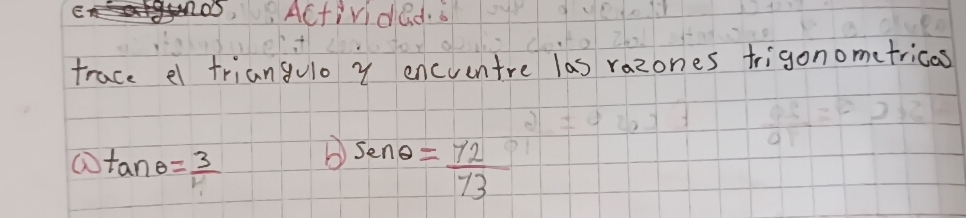 Actividad.
trace el triangulo y encuentre las razones trigonometricas
a) tanθ = 3/4 b) senθ = 72/73